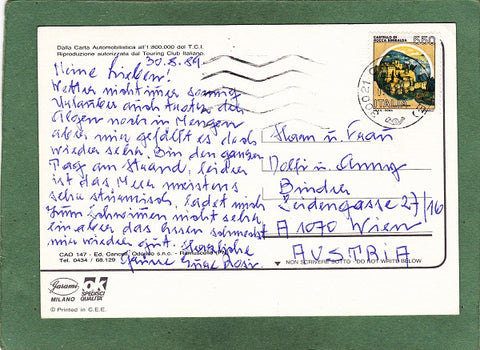 Dalla Carta Automobilistica all'1:800.000 del T.C.I.
Riproduzione autorizzata dal Touring Club Italiano.
30.8.89.
Meine Lieben!
Wetter nicht immer sonnig
Urlauber auch trotz der
Algen noch in Mengen
aber mir gefällt es doch
wieder sehr. Bin den ganzen
Tag am Strand, leider
ist das Meer meistens
sehr stürmisch, ladet mich
zum Schwimmen nicht sehr
ein aber das Essen schmeckt
mir wieder gut. Herzliche
Eure
CASTELLO DI
ROCCA SINIBALDA
550
ITALIA
30021
Herrn u. Frau
Dolfi u.
Binder
Zeidengasse 27/16
A 1070 Wien
AUSTRIA
CAO 147 - Ed.
Tel. 0434 / 68.129
NON SCRIVERE SOTTO - DO NOT WRITE BELOW
Garami
MILANO
OK
SPECIFICI
QUALITÀ
© Printed in C.E.E.